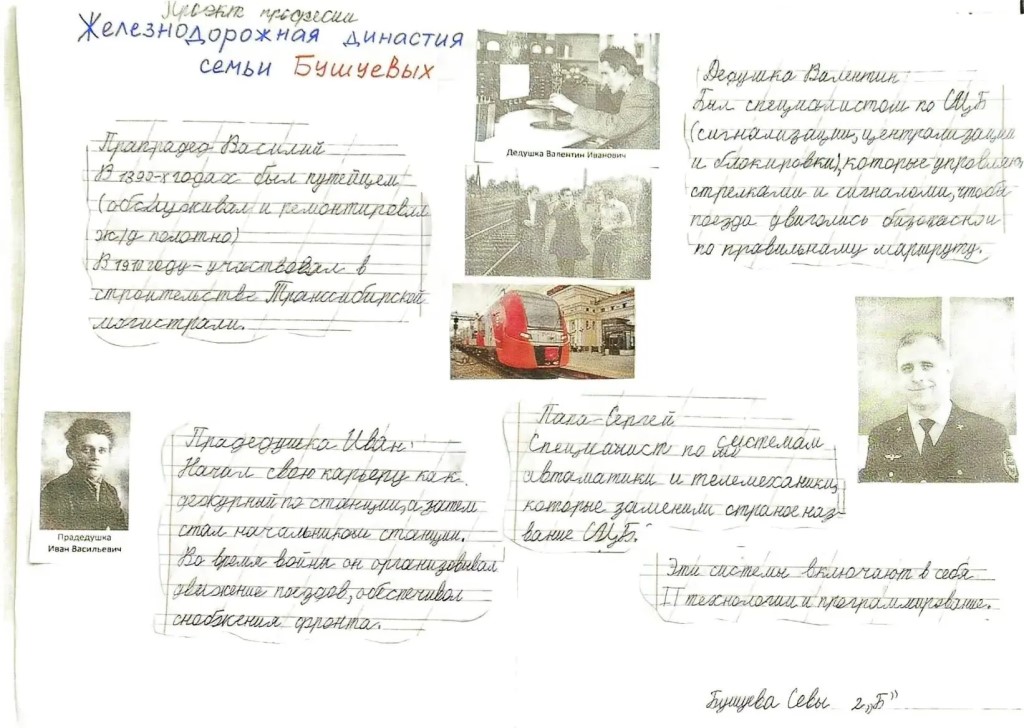 Проэкт професии
Железнодорожная династия
семьи Бушуевых
Прапрадед Василий
В 1890-х годах был путейцем
(обслуживал и ремонтировал
ж/д полотно)
В 1910 году – участвовал в
строительстве Транссибирской
магистрали.
Дедушка Валентин Иванович
Дедушка Валентин
Был специалистом по СЦБ
(сигнализации, централизации
и блокировки), которые управляют
стрелками и сигналами, чтобы
поезда двигались безопасной
по правильному маршруту.
Прадедушка
Иван Васильевич
Прадедушка Иван:
Начал свою карьеру как
дежурный по станции, а затем
стал начальником станции.
Во время войны он организовывал
движение поездов, обеспечивал
снабжения фронта.
Папа-Сергей
Специалист по системам
автоматики и телемеханики,
которые заменили старое наз-
вание СЦБ.
Эти системы включают в себя
IT технологии и программирование.
Бушуева Севы 2„Б”